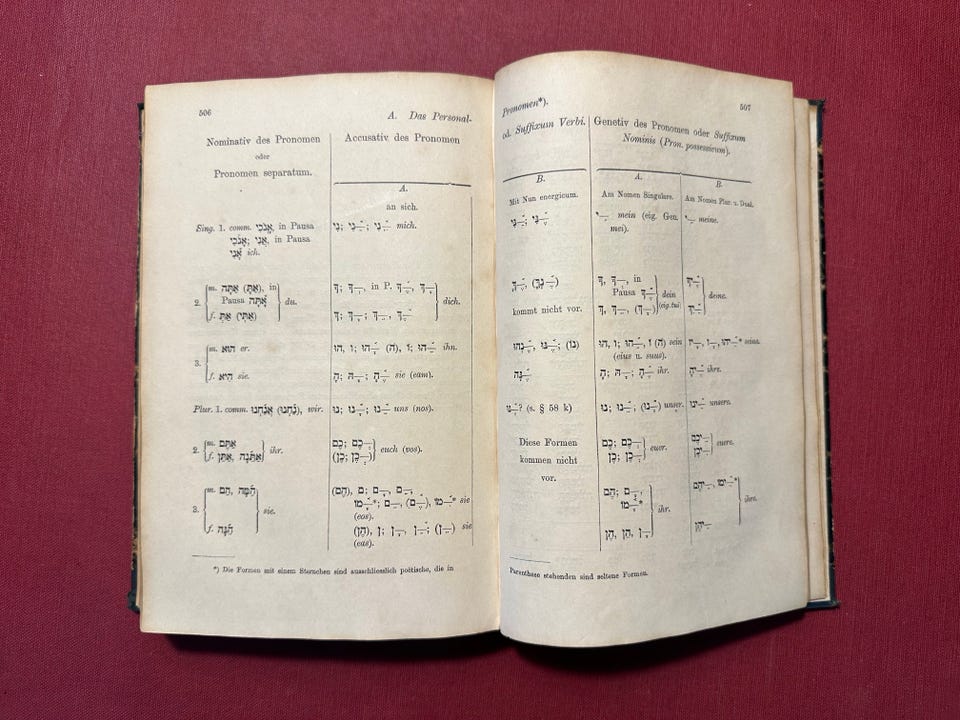 506
A. Das Personal-
Nominativ des Pronomen
oder
Pronomen separatum.
Sing. 1. comm. אָנֹכִי, in Pausa
אָנֹכִי; אֲנִי, in Pausa
אָנִי ich.
2. m. אַתָּה (אַתָּ), in
Pausa אָתָּה
du.
f. אַתְּ (אַתִּי)
3. m. הוּא er.
f. הִיא sie.
Plur. 1. comm. אֲנַחְנוּ (נַחְנוּ), wir.
2. m. אַתֶּם
ihr.
f. אַתֵּנָה, אַתֶּן
3. m. הֵם, הֵמָּה
sie.
f. הֵנָּה
Accusativ des Pronomen
A.
an sich.
נִי; נִי; נִי mich.
ךָ; ךָ, in P. ךָ, ךָ
dich.
ךְ; ךְ; ךְ, ךְ
הוּ, וֹ; הוּ (הֹ), וֹ; הוּ ihn.
הָ; הּ; הָ sie (eam).
נוּ; נוּ; נוּ uns (nos).
כֶם; כֶם
euch (vos).
(כֶן; כֶן)
(הֶם), ם; ם, ם,
מוֹ*; ם, (ם), מוֹ* sie
(eos).
(הֶן), ן; ן, ן; (ן) sie
(eas).
*) Die Formen mit einem Sternchen sind ausschliesslich poëtische, die in
507
Pronomen*).
od. Suffixum Verbi.
B.
Mit Nun energicum.
נִּי, נִּי
ךָּ, (נְךָ)
kommt nicht vor.
נְהוּ, נּוּ, (נוֹ)
נָּה
נּוּ? (s. § 58 k)
Diese Formen
kommen nicht
vor.
Genetiv des Pronomen oder Suffixum
Nominis (Pron. possessivum).
A.
Am Nomen Singulare.
י mein (eig. Gen.
mei).
ךָ, ךָ, in
Pausa ךָ
dein
(eig. tui)
ךְ, ךְ, (ךְ)
הוּ, וֹ; הוּ, (הֹ) sein
(eius u. suus).
הָ; הּ; הָ ihr.
נוּ; נוּ, (נוּ) unser.
כֶם; כֶם
euer.
כֶן; כֶן
הֶם; ם,
מוֹ*
ihr.
הֶן, הֵן, ן
B.
Am Nomen Plur. u. Dual.
י meine.
יךָ
deine.
יִךְ
יו, ו, יהוּ* seine.
יהָ ihre.
ינוּ unsere.
יכֶם
euere.
יכֶן
יהֶם, ימוֹ*
ihre.
יהֶן
Parenthese stehenden sind seltene Formen.